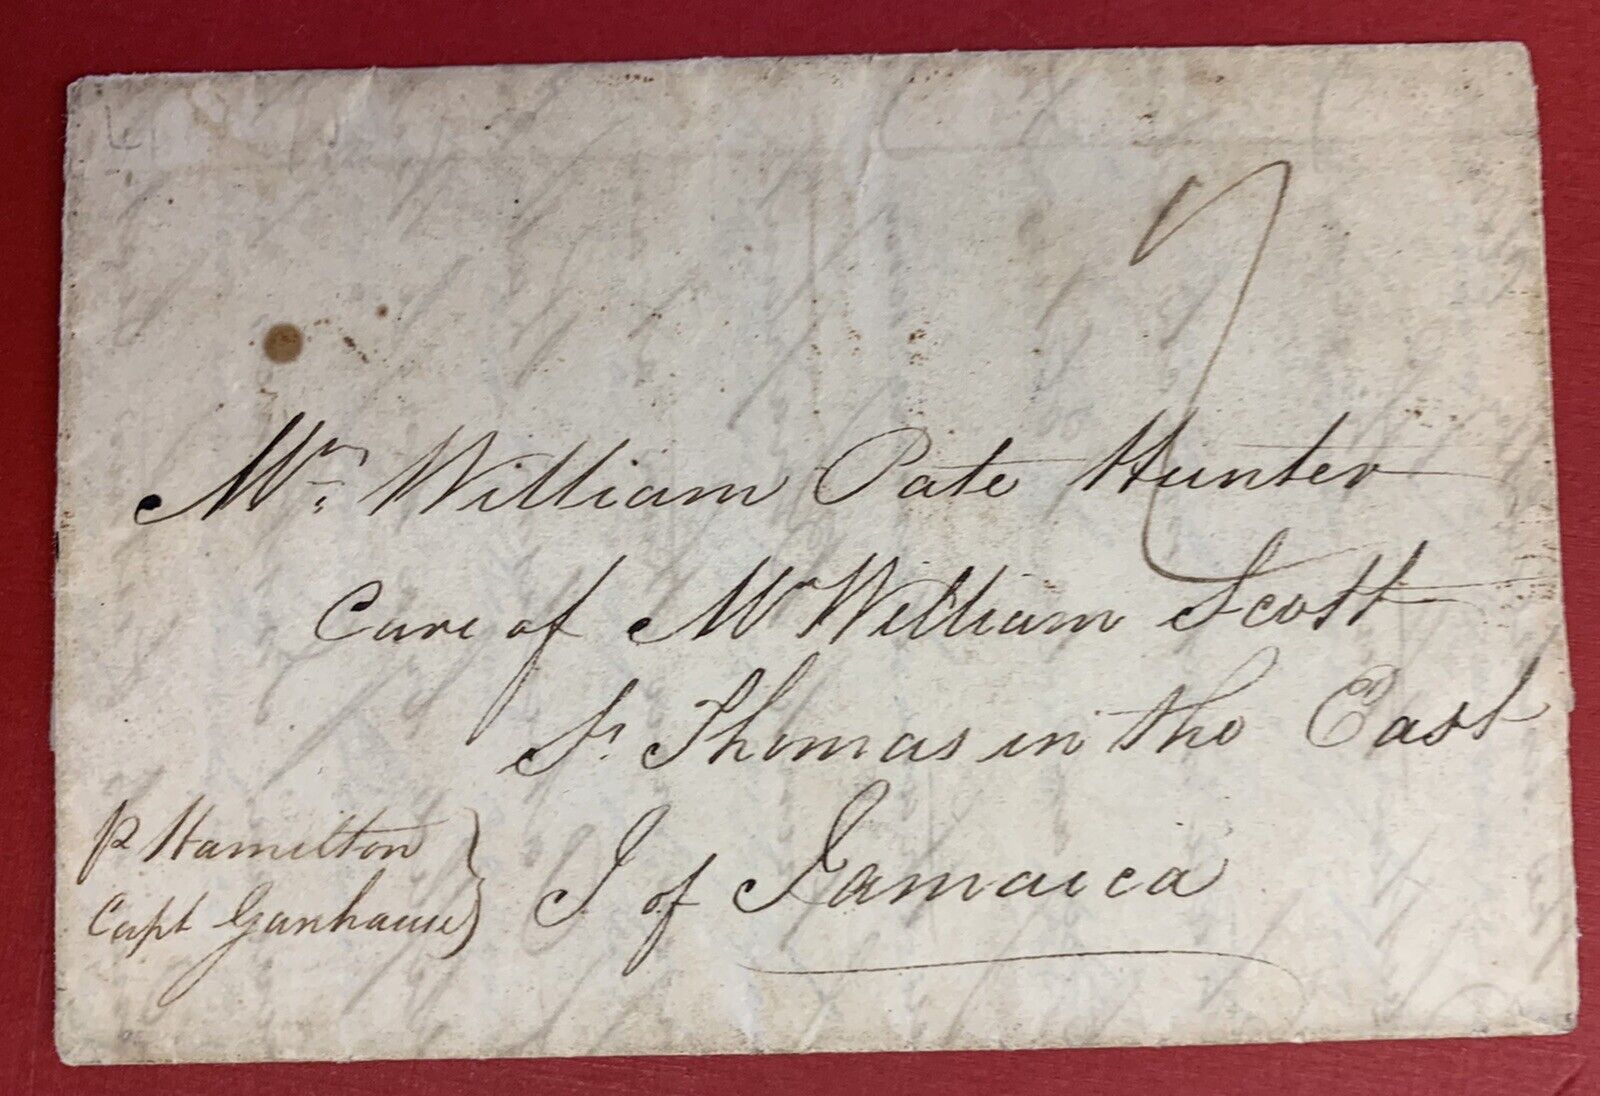 7
Mr. William Pate Hunter
Care of Mr William Scott
St. Thomas in the East
I of Jamaica
p Hamilton
Capt